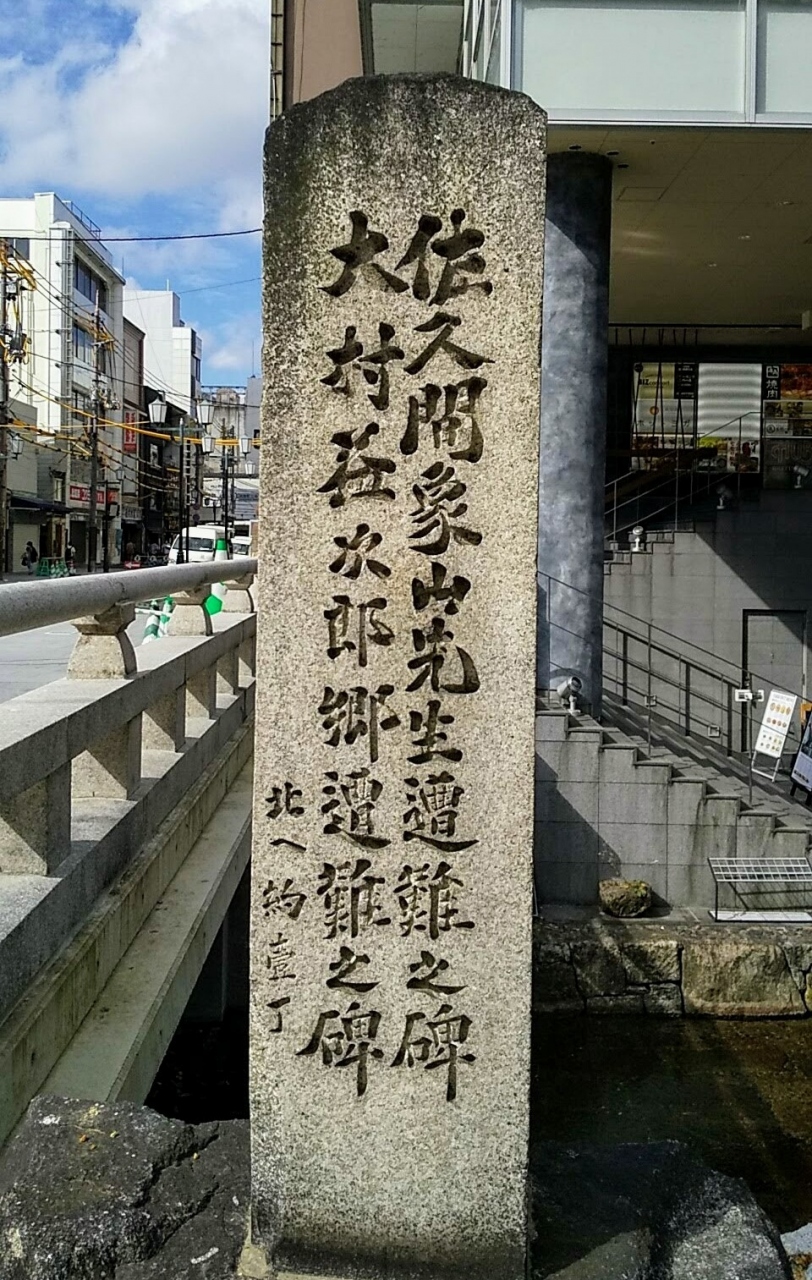 佐久間象山先生遭難之碑
大村益次郎郷遭難之碑
北へ約壹丁